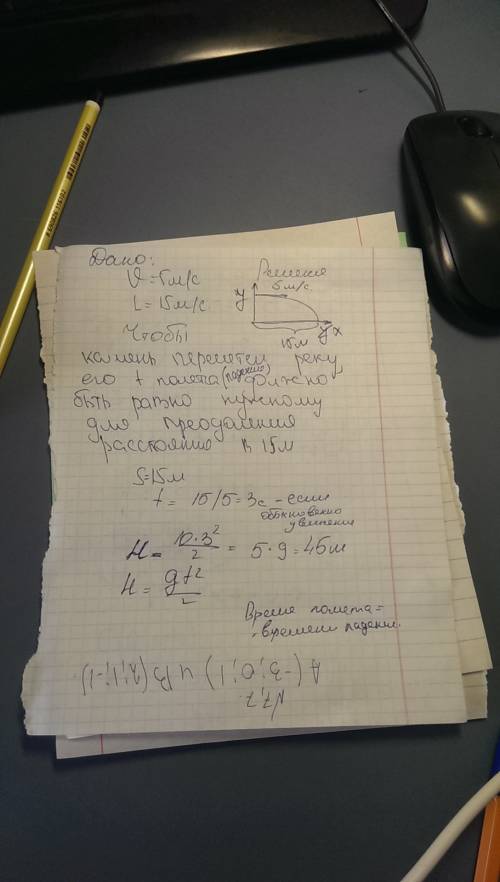 Дано:
V = 5м/с
L = 15м/с
Чтобы
Решение
5 м/с
y
y x
15м
камень перелетел реку
его t полета (падения) должно
быть равно нужному
для преодаления
расстояние в 15м
S=15м
t = 15/5 = 3с - если
обыкновенно
движения
H = 10·3²/2 = 5·9 = 45м
H = gt²/2
Время полета =
времени падения.
№7,7
A(-3;0;1) и B(2;1;-1)